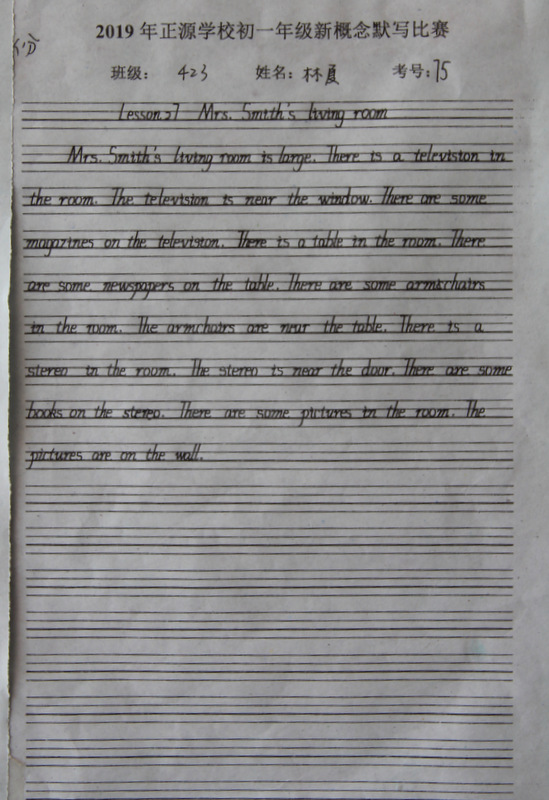 份)
2019 年正源学校初一年级新概念默写比赛
班级: 423 姓名: 林夏 考号: 75
Lesson 27 Mrs. Smith's living room
Mrs. Smith's living room is large. There is a television in
the room. The television is near the window. There are some
magazines on the television. There is a table in the room. There
are some newspapers on the table. There are some armchairs
in the room. The armchairs are near the table. There is a
stereo in the room. The stereo is near the door. There are some
books on the stereo. There are some pictures in the room. The
pictures are on the wall.